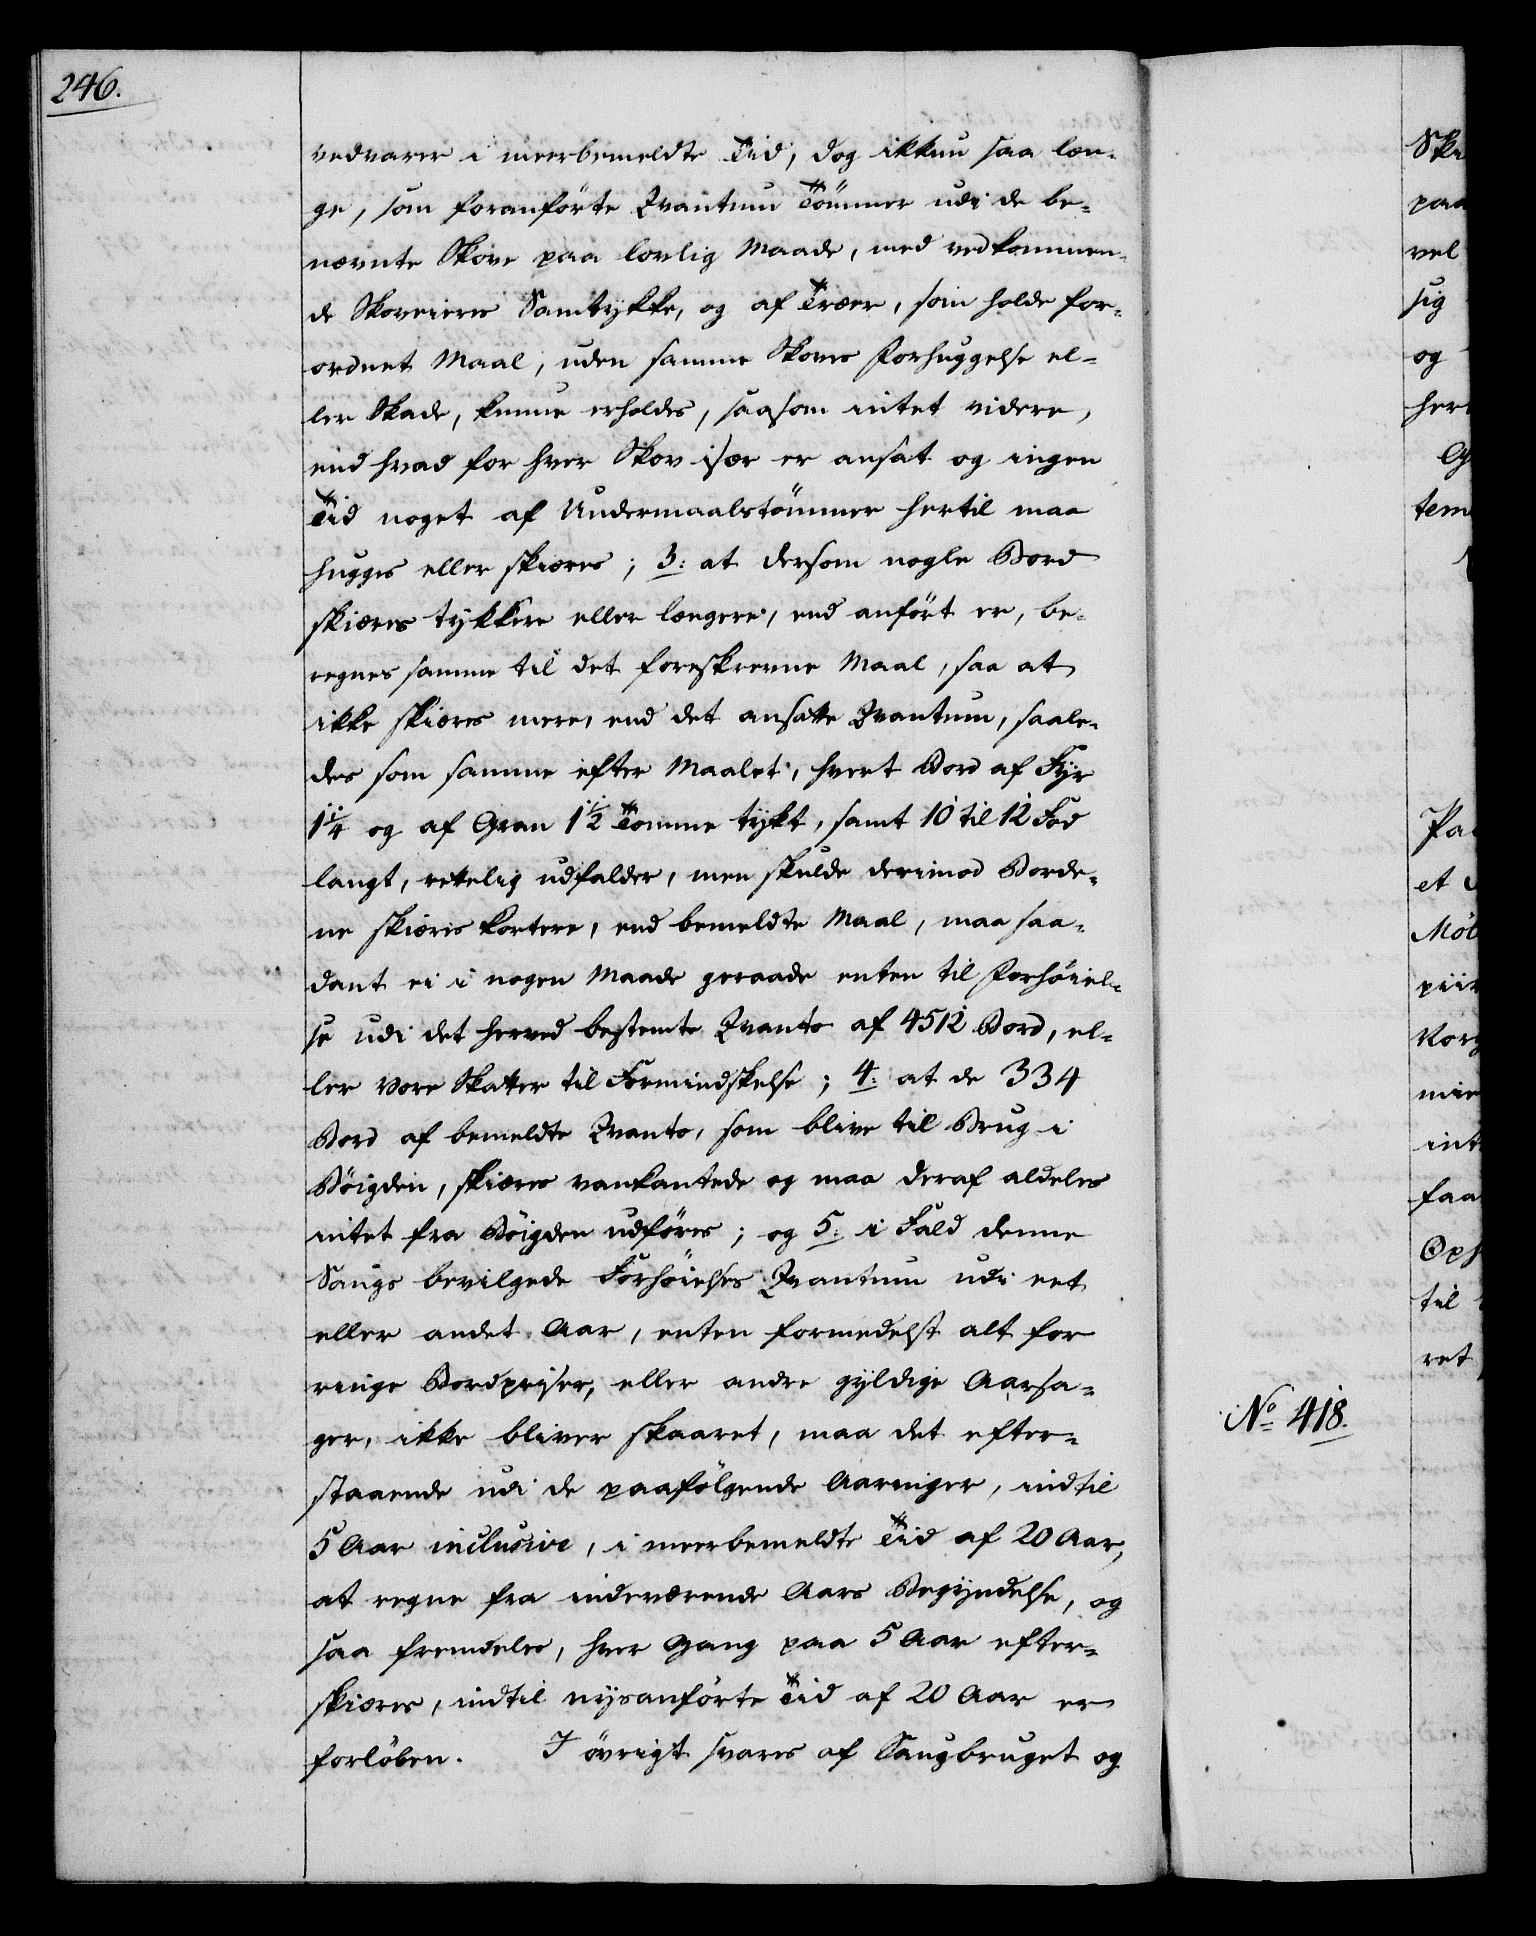 246.
vedvarer i meerbemeldte Tid, dog ikkun saa læn-
ge, som foranförte Qvantum Tömmer udi de be-
nævnte Skove paa lovlig Maade, med vedkommen-
de Skoveieres Samtykke, og af Træer, som holde for-
ordnet Maal, uden samme Skoves Forhuggelse el-
ler Skade, kunne erholdes, saasom intet videre,
end hvad for hver Skov især er ansat og ingen
Tid noget af Undermaalstömmer hertil maa
hugges eller skiæres; 3: at dersom nogle Bord
skiæres tykkere eller længere, end anfört er, be-
regnes samme til det foreskrevne Maal, saa at
ikke skiæres mere, end det ansatte Qvantum, saale-
des som samme efter Maalet, hvert Bord af Fyr
1 1/4 og af Gran 1 1/2 Tomme tykt, samt 10 til 12 Fod
langt, rettelig udfalder, men skulde derimod Borde-
ne skiæres kortere, end bemeldte Maal, maa saa-
dant ei i nogen Maade geraade enten til Forhöiel-
se udi det herved bestemte Qvanto af 4512 Bord, el-
ler vore Skatter til Formindskelse; 4: at de 334
Bord af bemeldte Qvanto, som blive til Brug i
Böigden, skiæres vankantede og maa deraf aldeles
intet fra Böigden udföres; og 5: i Fald denne
Saugs bevilgede Forhöielses Qvantum udi eet
eller andet Aar, enten formedelst alt for
ringe Bordpriser, eller andre gyldige Aarsa-
ger, ikke bliver skaaret, maa det efter-
staaende udi de paafölgende Aaringer, indtil
5 Aar inclusive, i meerbemeldte Tid af 20 Aar,
at regne fra indeværende Aars Begyndelse, og
saa fremdeles, hver Gang paa 5 Aar efter-
skiæres, indtil nysanförte Tid af 20 Aar er
forlöben. I övrigt svares af Saugbruget og
No 418.
paa
vel
sig
og
et
til
ret